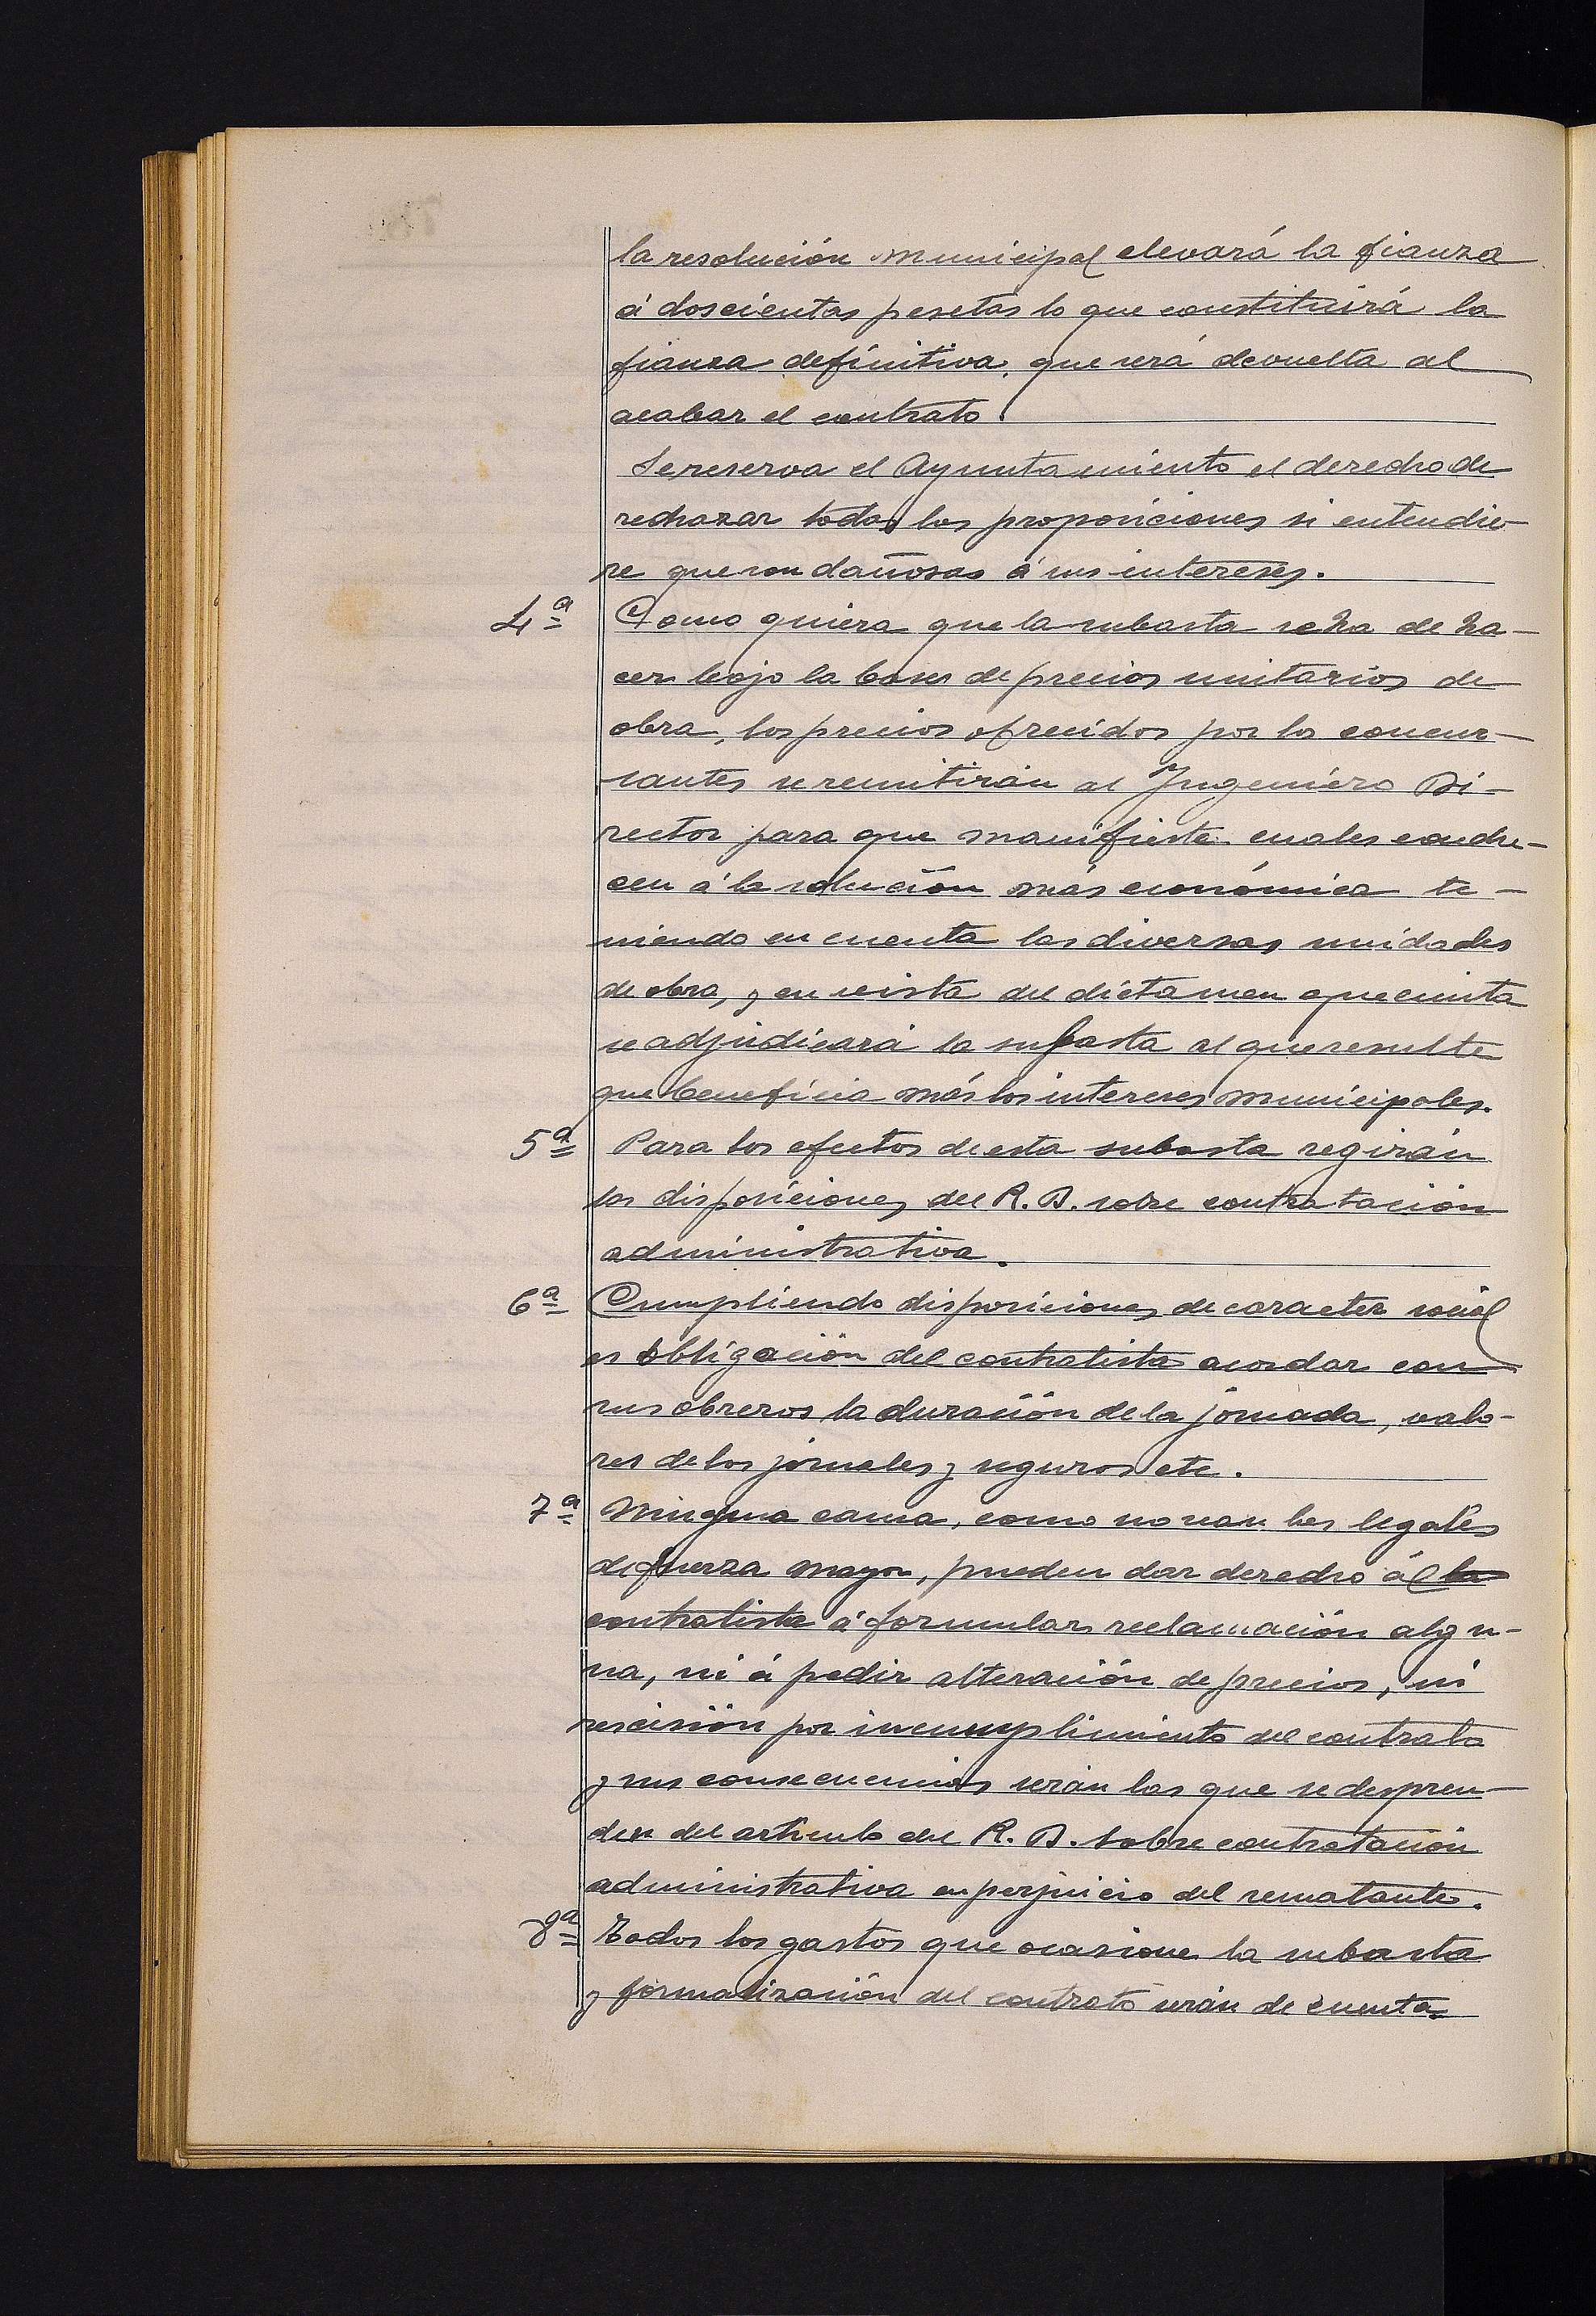 la resolución municipal elevará la fianza
á doscientas pesetas lo que constituirá la
fianza definitiva, que será devuelta al
acabar el contrato.
Se reserva el Ayuntamiento el derecho de
rechazar todas las proposiciones si entendie-
re que son dañosas á sus intereses.
4ª Como quiera que la subasta se ha de ha-
cer bajo la bases de precios unitarios de
obra, los precios ofrecidos por los concur-
santes se remitirán al Ingeniero Di-
rector para que manifieste cuales condu-
cen á la solución más económica te-
niendo en cuenta las diversas unidades
de obra, y en vista del dictamen que emita
se adjudicará la subasta al que resulte
que beneficia más los intereses municipales.
5ª Para los efectos de esta subasta regirán
las disposiciones del R. D. sobre contratación
administrativa.
6ª Cumpliendo disposiciones de caracter social
es obligación del contratista acordar con
sus obreros la duración de la jornada, valo-
res de los jornales y seguros etc.
7ª Ninguna causa, como no sean las legales
de fuerza mayor, pueden dar derecho ál la
contratista á formular reclamación algu-
na, ni á pedir alteración de precios, ni
rescisión por incumplimiento del contrato
y sus consecuencias serán las que se despren-
den del articulo del R. D. sobre contratación
administrativa en perjuicio del rematante.
8ª Todos los gastos que ocasione la subasta
y formalización del contrato serán de cuenta